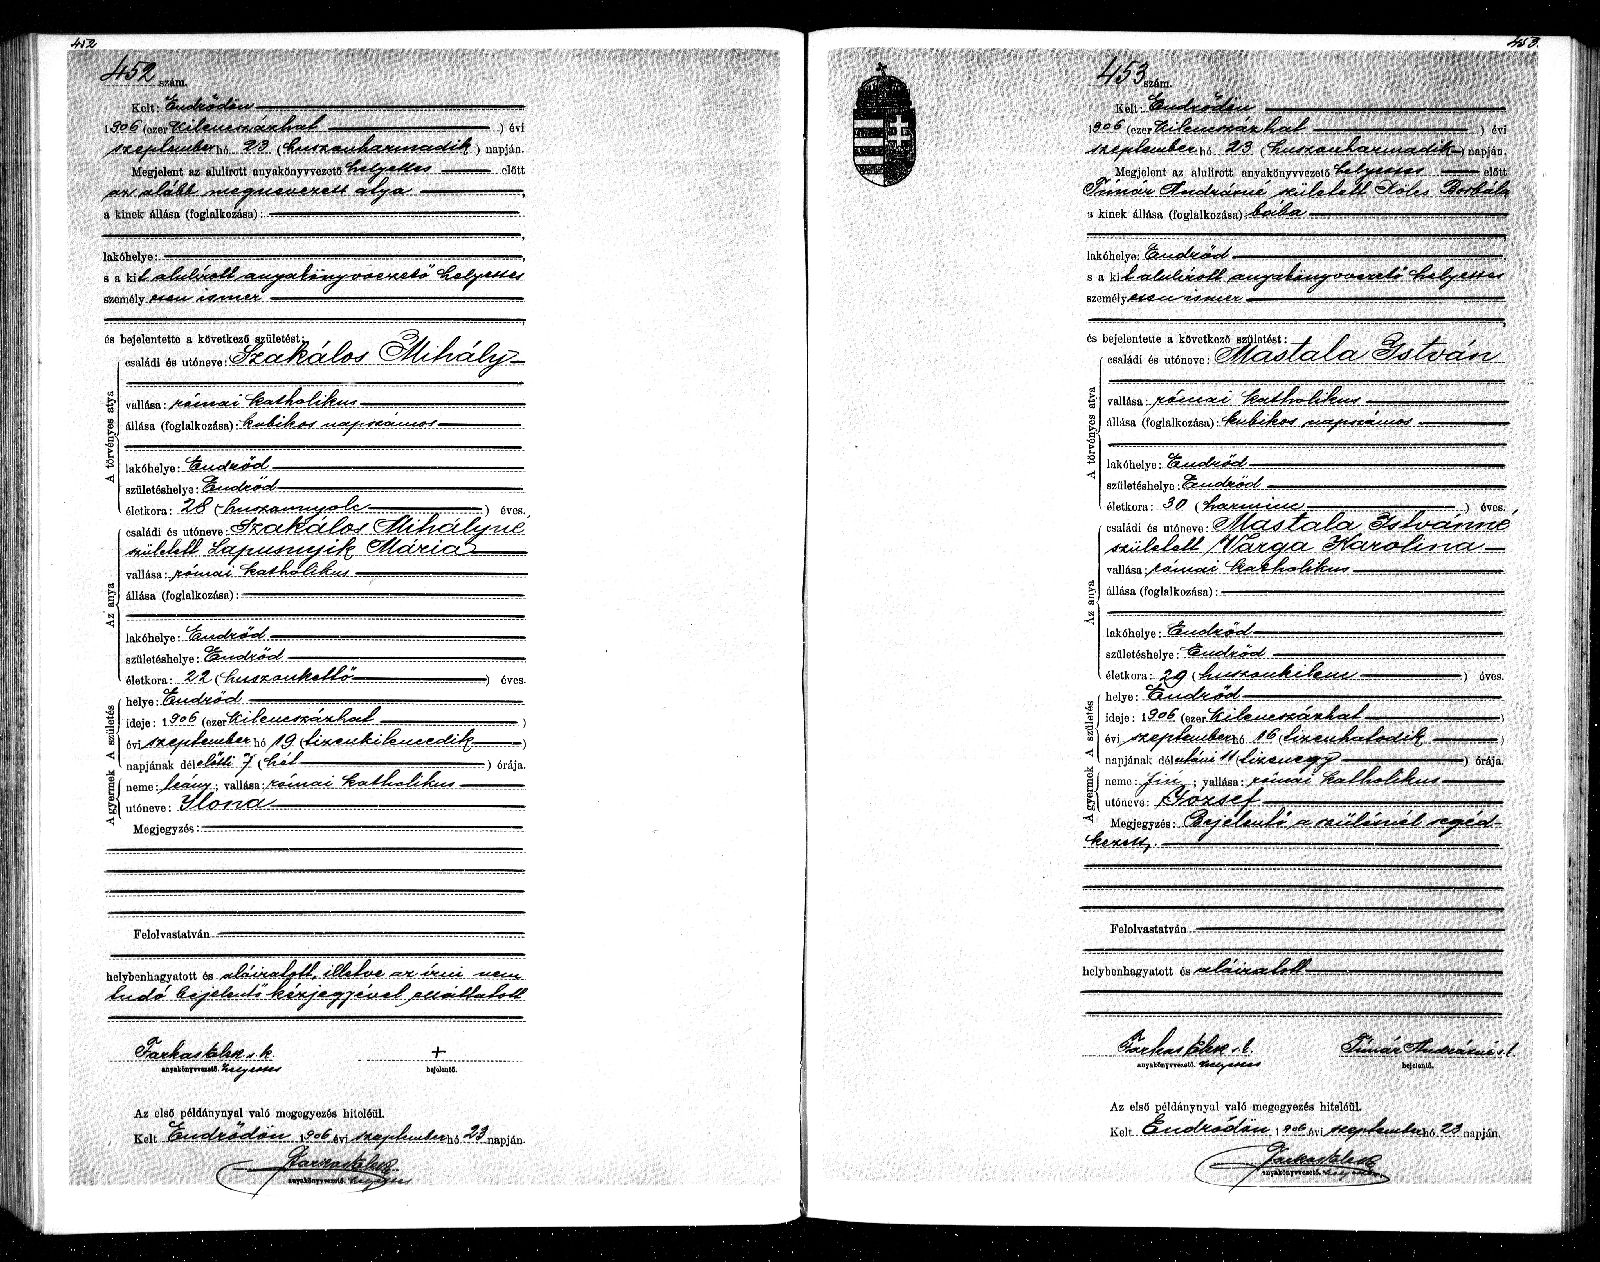 452
452 szám.
Kelt: Endrődön
1906 (ezer kilencszázhat) évi
szeptember hó 23 (huszonharmadik) napján.
Megjelent az alulirott anyakönyvvezető helyettes előtt
az alább megnevezett atya,
a kinek állása (foglalkozása):
lakóhelye:
s a kit alulírott anyakönyvvezető helyettes
személyesen ismer
és bejelentette a következő születést:
A törvényes atya
családi és utóneve: Szakálos Mihály
vallása: római katholikus
állása (foglalkozása): kubikos napszámos
lakóhelye: Endrőd
születéshelye: Endrőd
életkora: 28 (huszonnyolc) éves.
Az anya
családi és utóneve: Szakálos Mihályné
született Lapusnyik Mária
vallása: római katholikus
állása (foglalkozása):
lakóhelye: Endrőd
születéshelye: Endrőd
életkora: 22 (huszonkettő) éves.
A születés
helye: Endrőd
ideje: 1906 (ezer kilencszázhat)
évi szeptember hó 19 (tizenkilencedik)
napjának délelőtti 7 (hét) órája.
A gyermek
neme: leány; vallása: római katholikus
utóneve: Ilona
Megjegyzés:
Felolvastatván
helybenhagyatott és aláiratott, illetve az írni nem
tudó bejelentő kézjegyével elláttatott
Farkas Elek s. k. +
anyakönyvvezető. helyettes bejelentő.
Az első példánynyal való megegyezés hiteléül.
Kelt Endrődön 1906 évi szeptember hó 23 napján.
Farkas Elek
anyakönyvvezető. helyettes
453.
453 szám.
Kelt: Endrődön
1906 (ezer kilencszázhat) évi
szeptember hó 23 (huszonharmadik) napján.
Megjelent az alulirott anyakönyvvezető helyettes előtt
Tímár Andrásné született Borbála
a kinek állása (foglalkozása): bába
lakóhelye: Endrőd
s a kit alulírott anyakönyvvezető helyettes
személyesen ismer
és bejelentette a következő születést:
A törvényes atya
családi és utóneve: Mastala István
vallása: római katholikus
állása (foglalkozása): kubikos napszámos
lakóhelye: Endrőd
születéshelye: Endrőd
életkora: 30 (harminc) éves.
Az anya
családi és utóneve: Mastala Istvánné
született Varga Karolina
vallása: római katholikus
állása (foglalkozása):
lakóhelye: Endrőd
születéshelye: Endrőd
életkora: 29 (huszonkilenc) éves.
A születés
helye: Endrőd
ideje: 1906 (ezer kilencszázhat)
évi szeptember hó 16 (tizenhatodik)
napjának délutáni 11 (tizenegy) órája.
A gyermek
neme: fiú; vallása: római katholikus
utóneve: József
Megjegyzés: Bejelentő a szülésnél segéd-
kezett.
Felolvastatván
helybenhagyatott és aláiratott
Farkas Elek s. k. Tímár Andrásné s. k.
anyakönyvvezető. helyettes bejelentő.
Az első példánynyal való megegyezés hiteléül.
Kelt Endrődön 1906 évi szeptember hó 23 napján.
Farkas Elek
anyakönyvvezető. helyettes